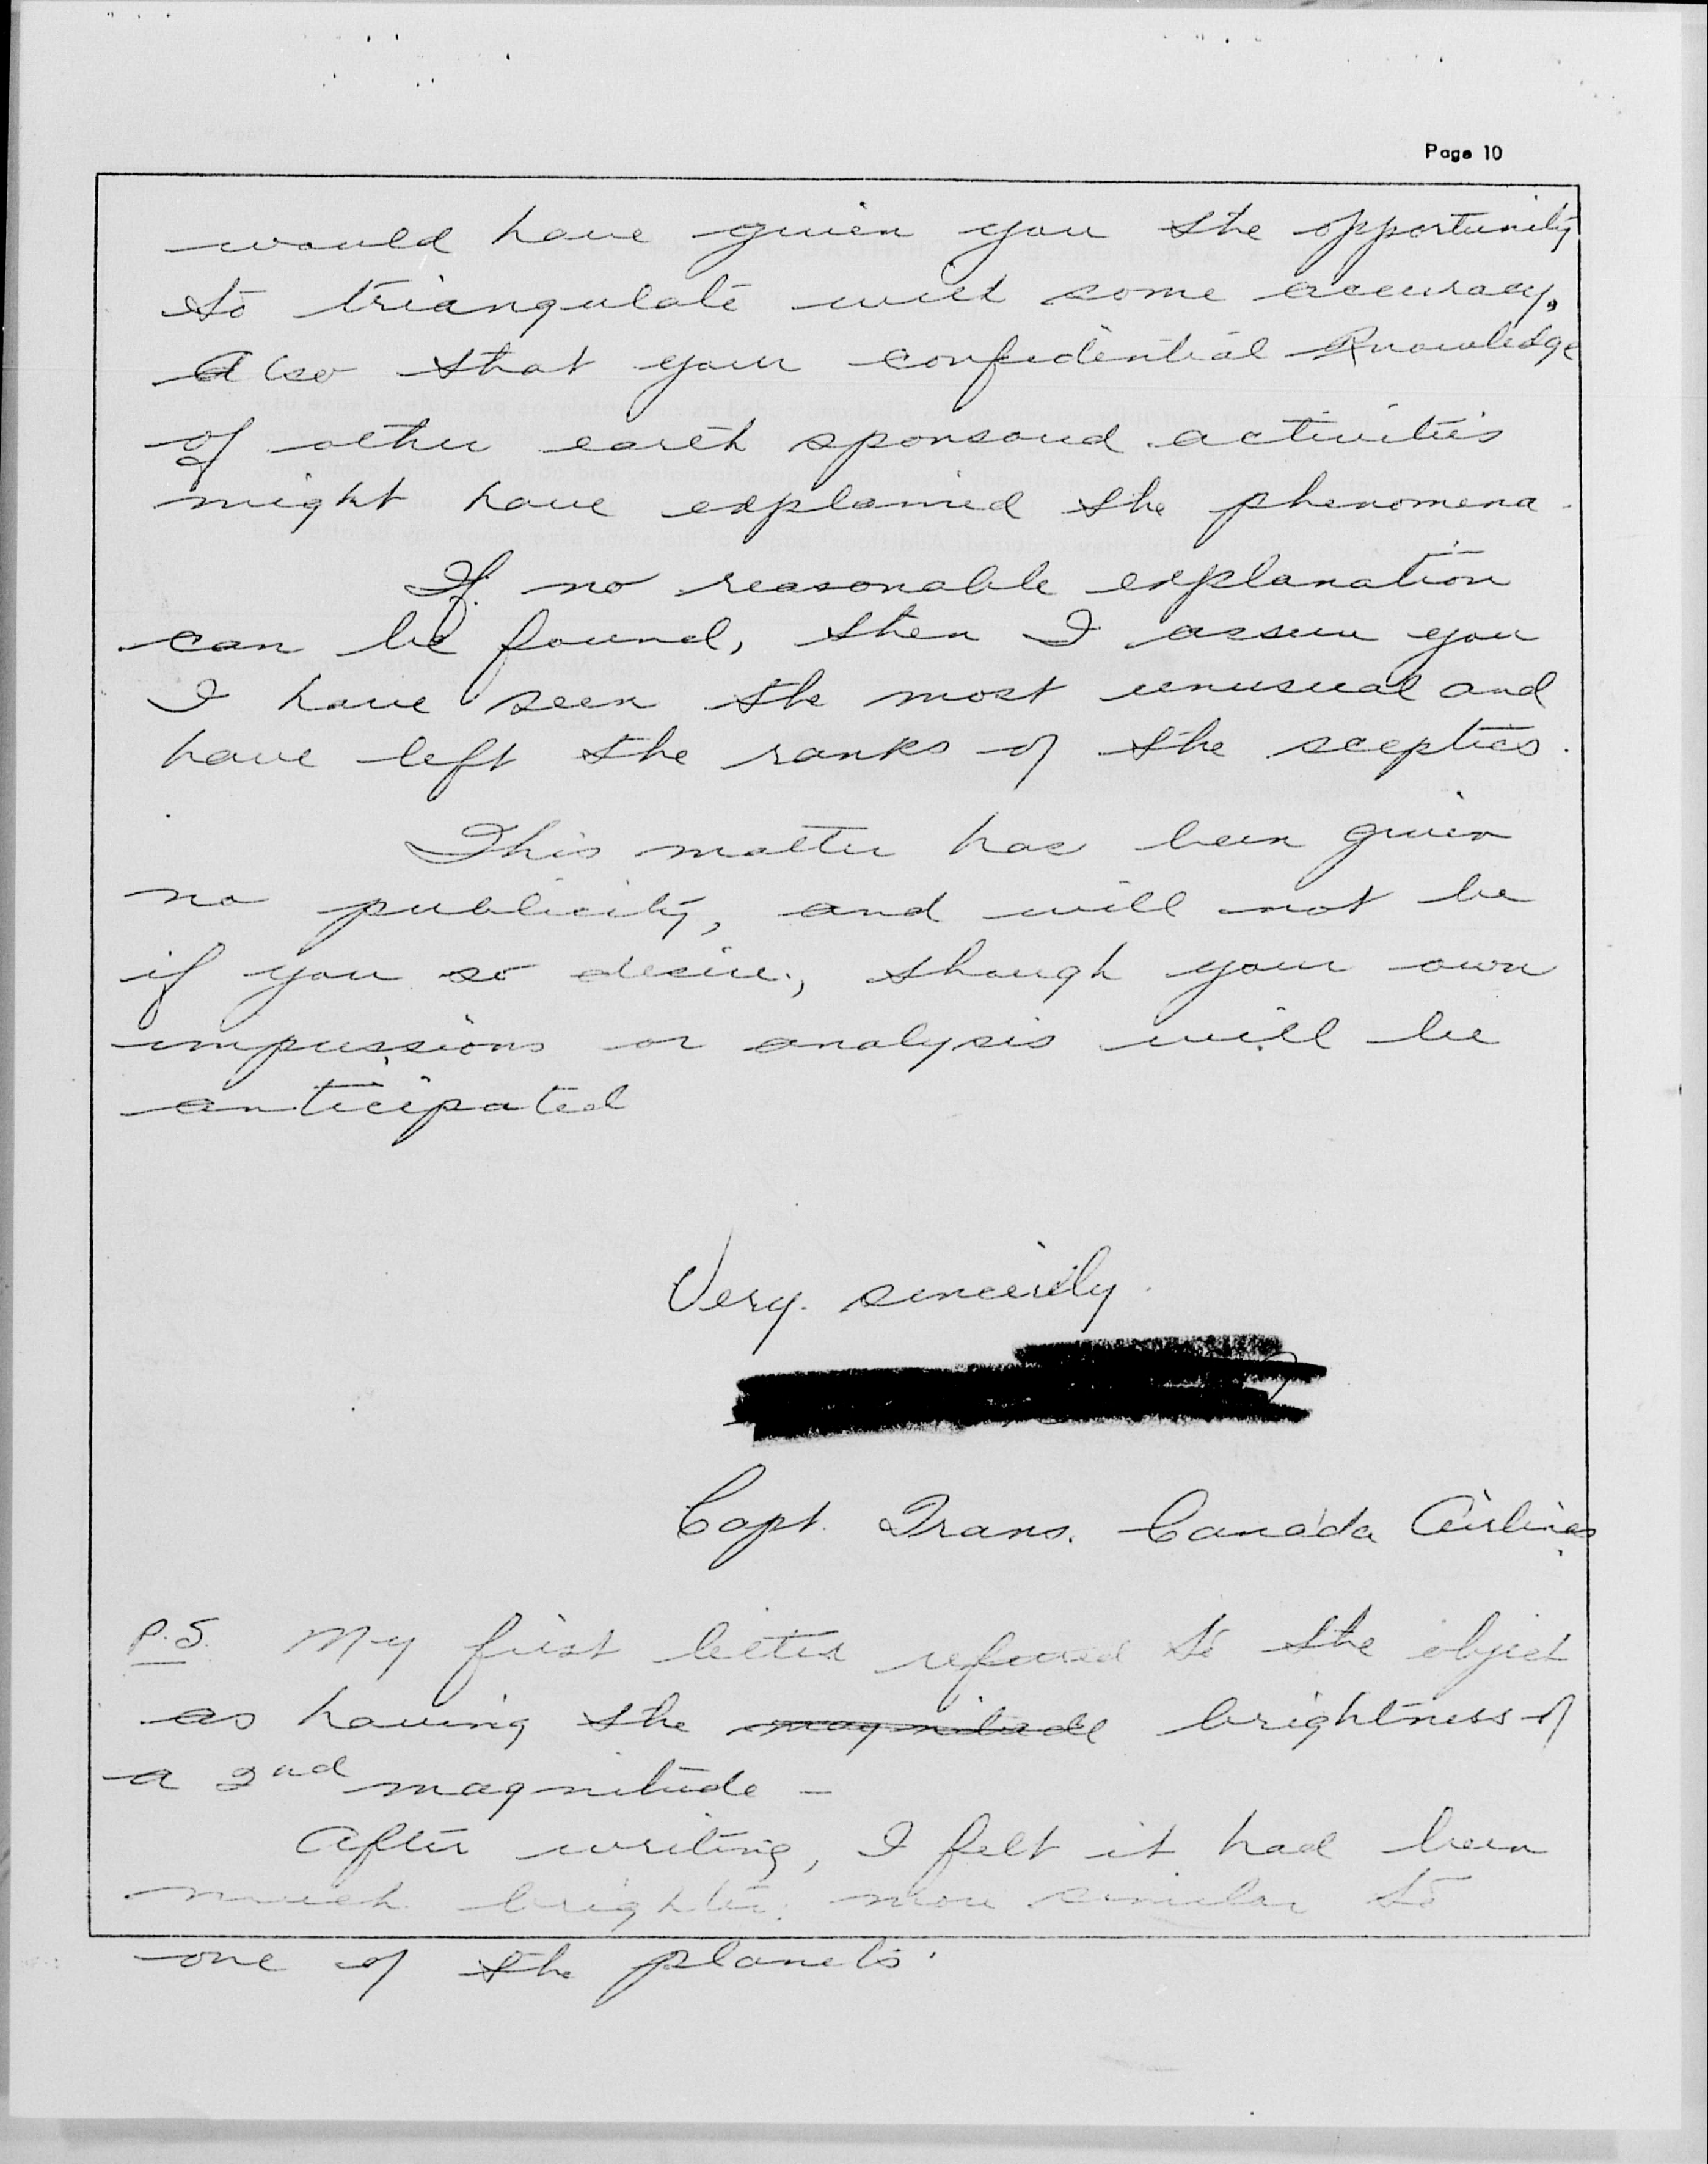 Page 10
would have given you the opportunity
to triangulate with some accuracy.
Also that your confidential knowledge
of other earth sponsored activities
might have explained the phenomena.
If no reasonable explanation
can be found, then I assure you
I have seen the most unusual and
have left the ranks of the sceptics.
This matter has been given
no publicity, and will not be
if you so desire, though your own
impressions or analysis will be
anticipated
Very sincerely.
Capt. Trans. Canada Airlines
P.S. My first letter referred to the object
as having the magnitude brightness of
a 2nd magnitude -
After writing, I felt it had been
much brighter, more similar to
one of the planets.